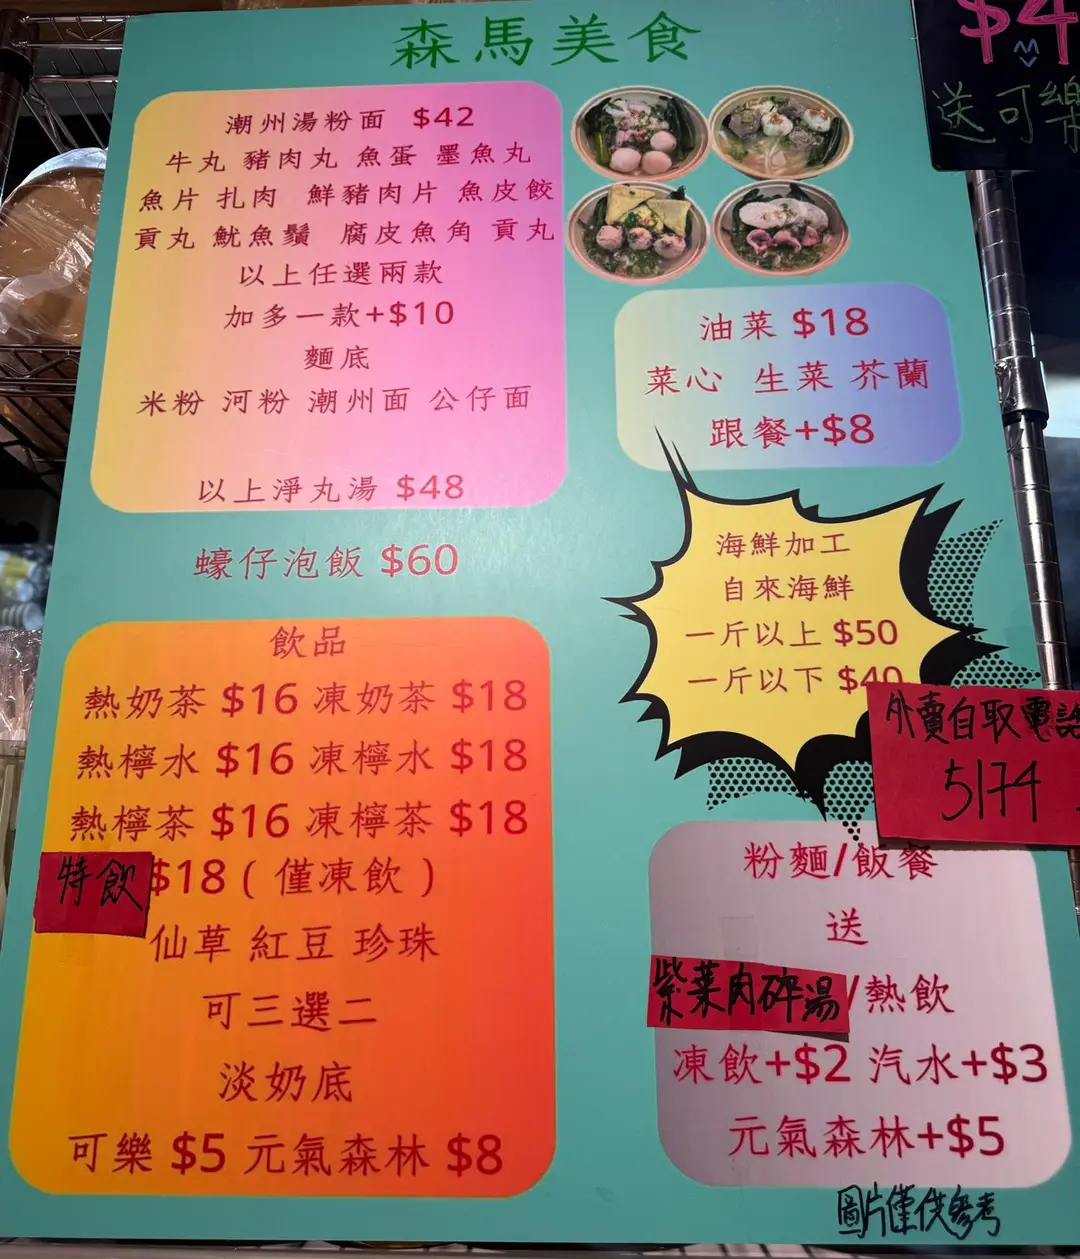 森馬美食
潮州湯粉面 $42
牛丸 豬肉丸 魚蛋 墨魚丸
魚片 扎肉 鮮豬肉片 魚皮餃
貢丸 魷魚鬚 腐皮魚角 貢丸
以上任選兩款
加多一款+$10
麵底
米粉 河粉 潮州面 公仔面
以上淨丸湯 $48
蠔仔泡飯 $60
飲品
熱奶茶 $16 凍奶茶 $18
熱檸水 $16 凍檸水 $18
熱檸茶 $16 凍檸茶 $18
特飲 $18 ( 僅凍飲 )
仙草 紅豆 珍珠
可三選二
淡奶底
可樂 $5 元氣森林 $8
$4
送可樂
油菜 $18
菜心 生菜 芥蘭
跟餐+$8
海鮮加工
自來海鮮
一斤以上 $50
一斤以下 $40
外賣自取電話
5174
粉麵/飯餐
送
紫菜肉碎湯/熱飲
凍飲+$2 汽水+$3
元氣森林+$5
圖片僅供參考